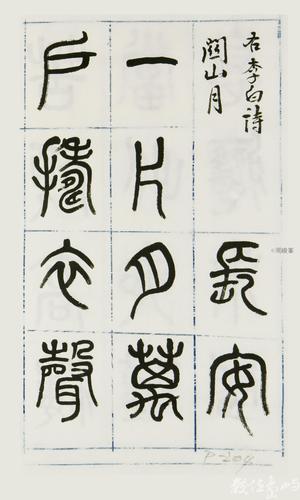 右李白詩
關山月
長安
一片月萬
戶擣衣聲
P-204
數位島嶼